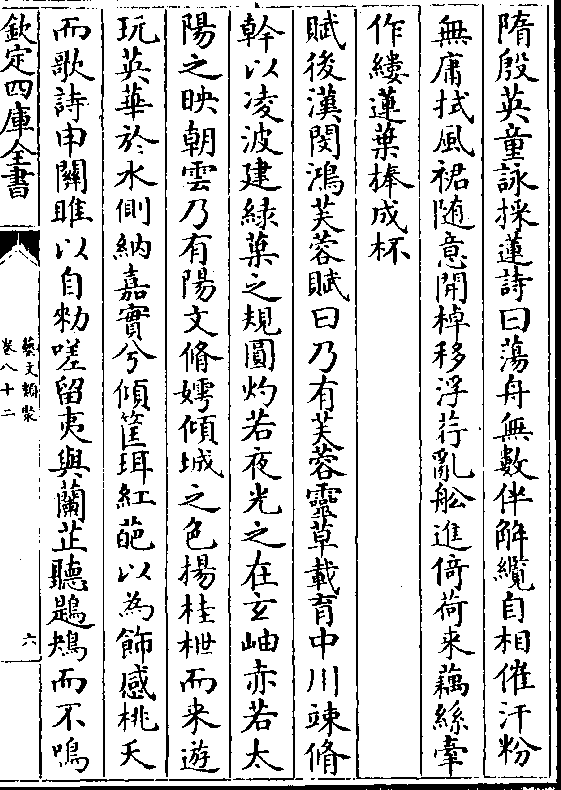 隋殷英童詠採蓮詩曰蕩舟無數伴解纜自相催汗粉
無庸拭風裙随意開棹移浮荇亂舩進倚荷来藕絲牽
作縷蓮葉捧成杯
賦後漢閔鴻芙蓉賦曰乃有芙蓉靈草載育中川竦脩
幹以凌波建緑葉之規圓灼若夜光之在玄岫赤若太
陽之映朝雲乃有陽文脩嫮傾城之色揚桂枻而来遊
玩英華於水側納嘉實兮傾筐珥紅葩以為飾感桃夭
而歌詩申關雎以自勑嗟留夷與蘭芷聽鶗鴂而不鳴
欽定四庫全書
藝文類聚
卷八十二
六